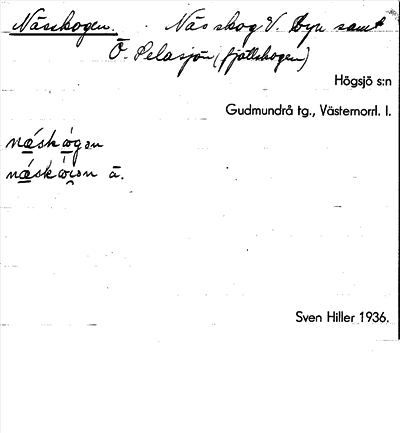 Nässkogen. Näs skog V. byn samt
Ö. Pelasjön (fjällskogen)
Högsjö s:n
Gudmundrå tg., Västernorrl. l.
næ̀skò̤gən
næ̀skò̤ɪən ā.
Sven Hiller 1936.